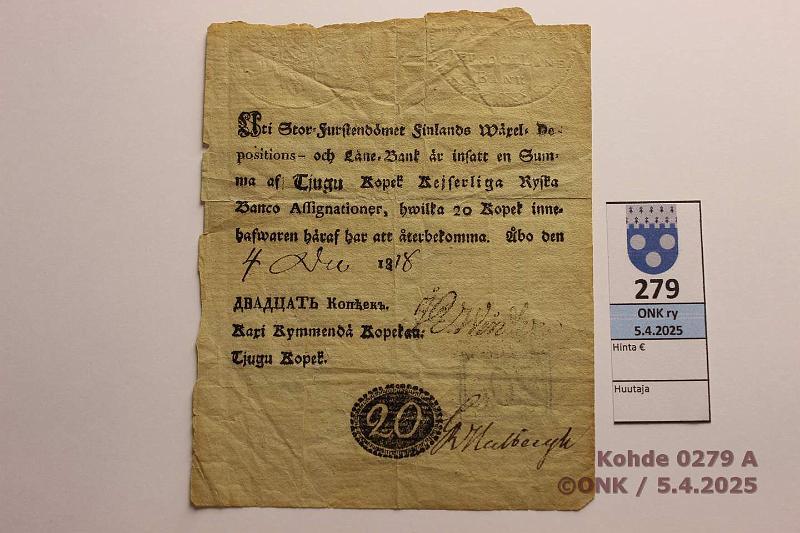 LÅNE
BANK
Uti Stor-Furstendömet Finlands Wäxel- De-
positions- och Låne-Bank är insatt en Sum-
ma af Tjugu Kopek Kejserliga Ryska
Banco Assignationer, hwilka 20 Kopek inne-
hafwaren häraf har att återbekomma. Åbo den
4 Dec 1818
ДВАДЦАТЬ Копѣекъ.
Kaxi Kymmendä Kopekau.
Tjugu Kopek.
20
279
ONK ry
5.4.2025
Hinta €
Huutaja
Kohde 0279 A
©ONK / 5.4.2025